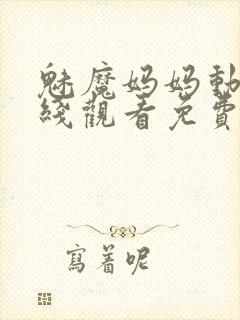 魅魔妈妈動
綫觀看免費
寫着呢